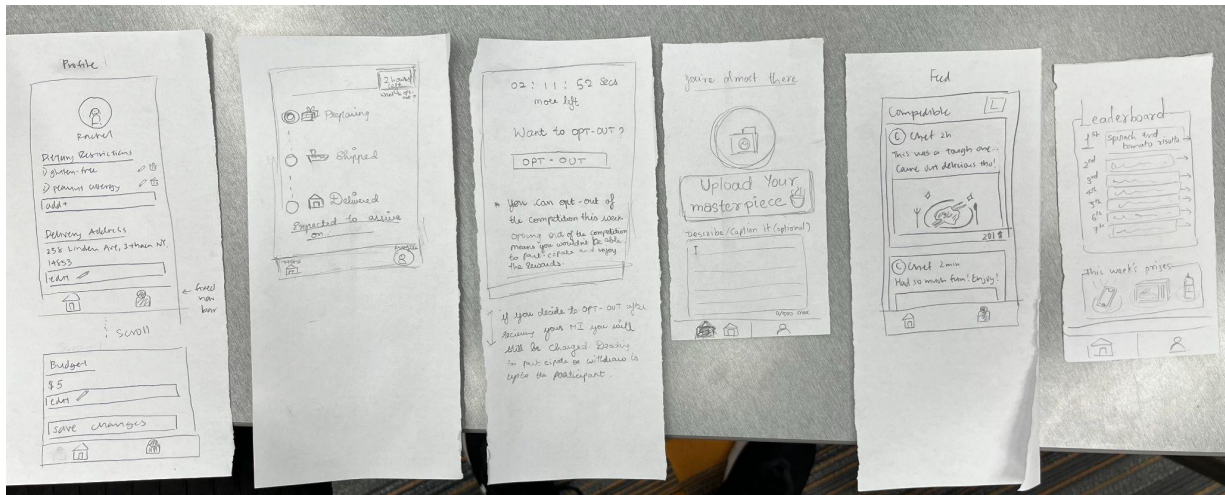 Profile
Rachel
Dietary Restrictions
gluten-free
peanut allergy
add+
Delivery Address
258 Linden Ave, Ithaca NY,
14853
edit
← fixed
nav
bar
Scroll
Budget
$5
edit
save changes
2 hours
left
Preparing
Shipped
Delivered
Expected to arrive
on
Home
Profile
02 : 11 : 52 secs
more left
Want to OPT-OUT?
OPT-OUT
* You can opt-out of
the competition this week
Opting out of the competition
means you wouldn't be able
to participate and enjoy
the Rewards.
if you decide to OPT-OUT after
recieving your MI you will
still be charged
to participate or withdraw is
upto the participant.
You're almost there
Upload Your
masterpiece
Describe/Caption it (optional)
Feed
Compedible
L
C Chef 2h
This was a tough one..
Came out delicious tho!
201
C Chef 2min
Had so much fun! Enjoy!
Leaderboard
1st Spinach and
tomato risotto
2nd
3rd
4th
5th
6th
7th
This week's prizes